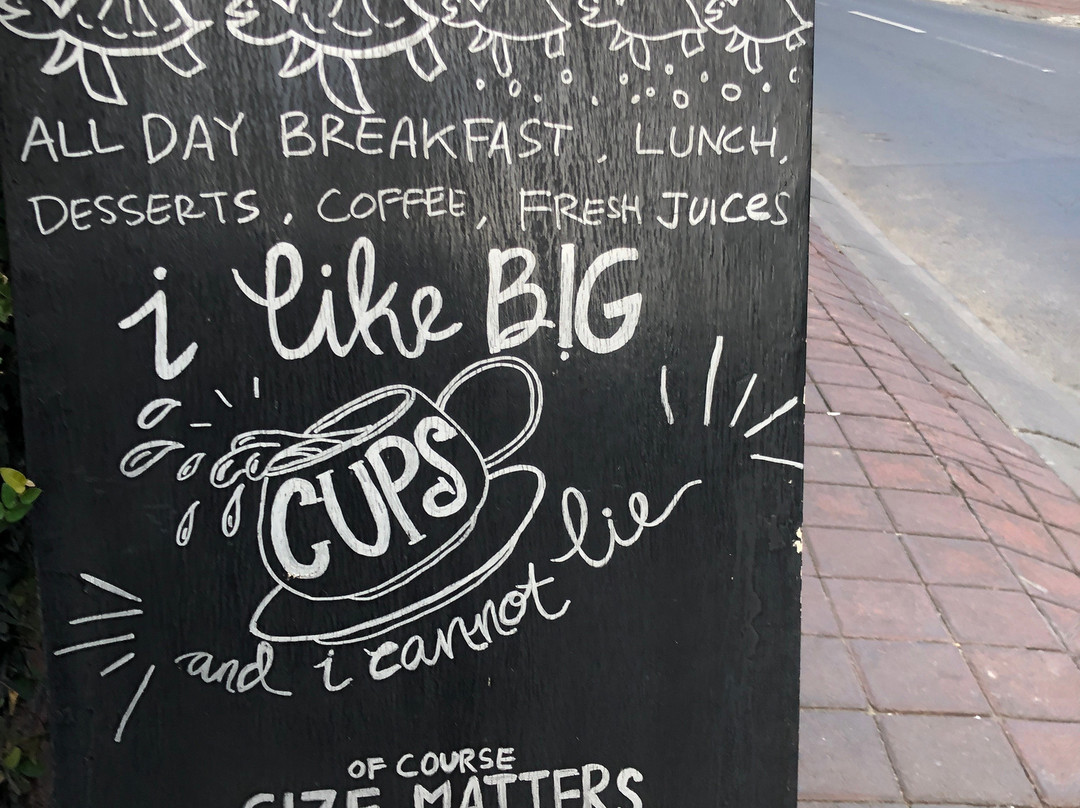 ALL DAY BREAKFAST, LUNCH,
DESSERTS, COFFEE, FRESH JUICES
i like B!G
CUPS
and i cannot lie
OF COURSE
SIZE MATTERS